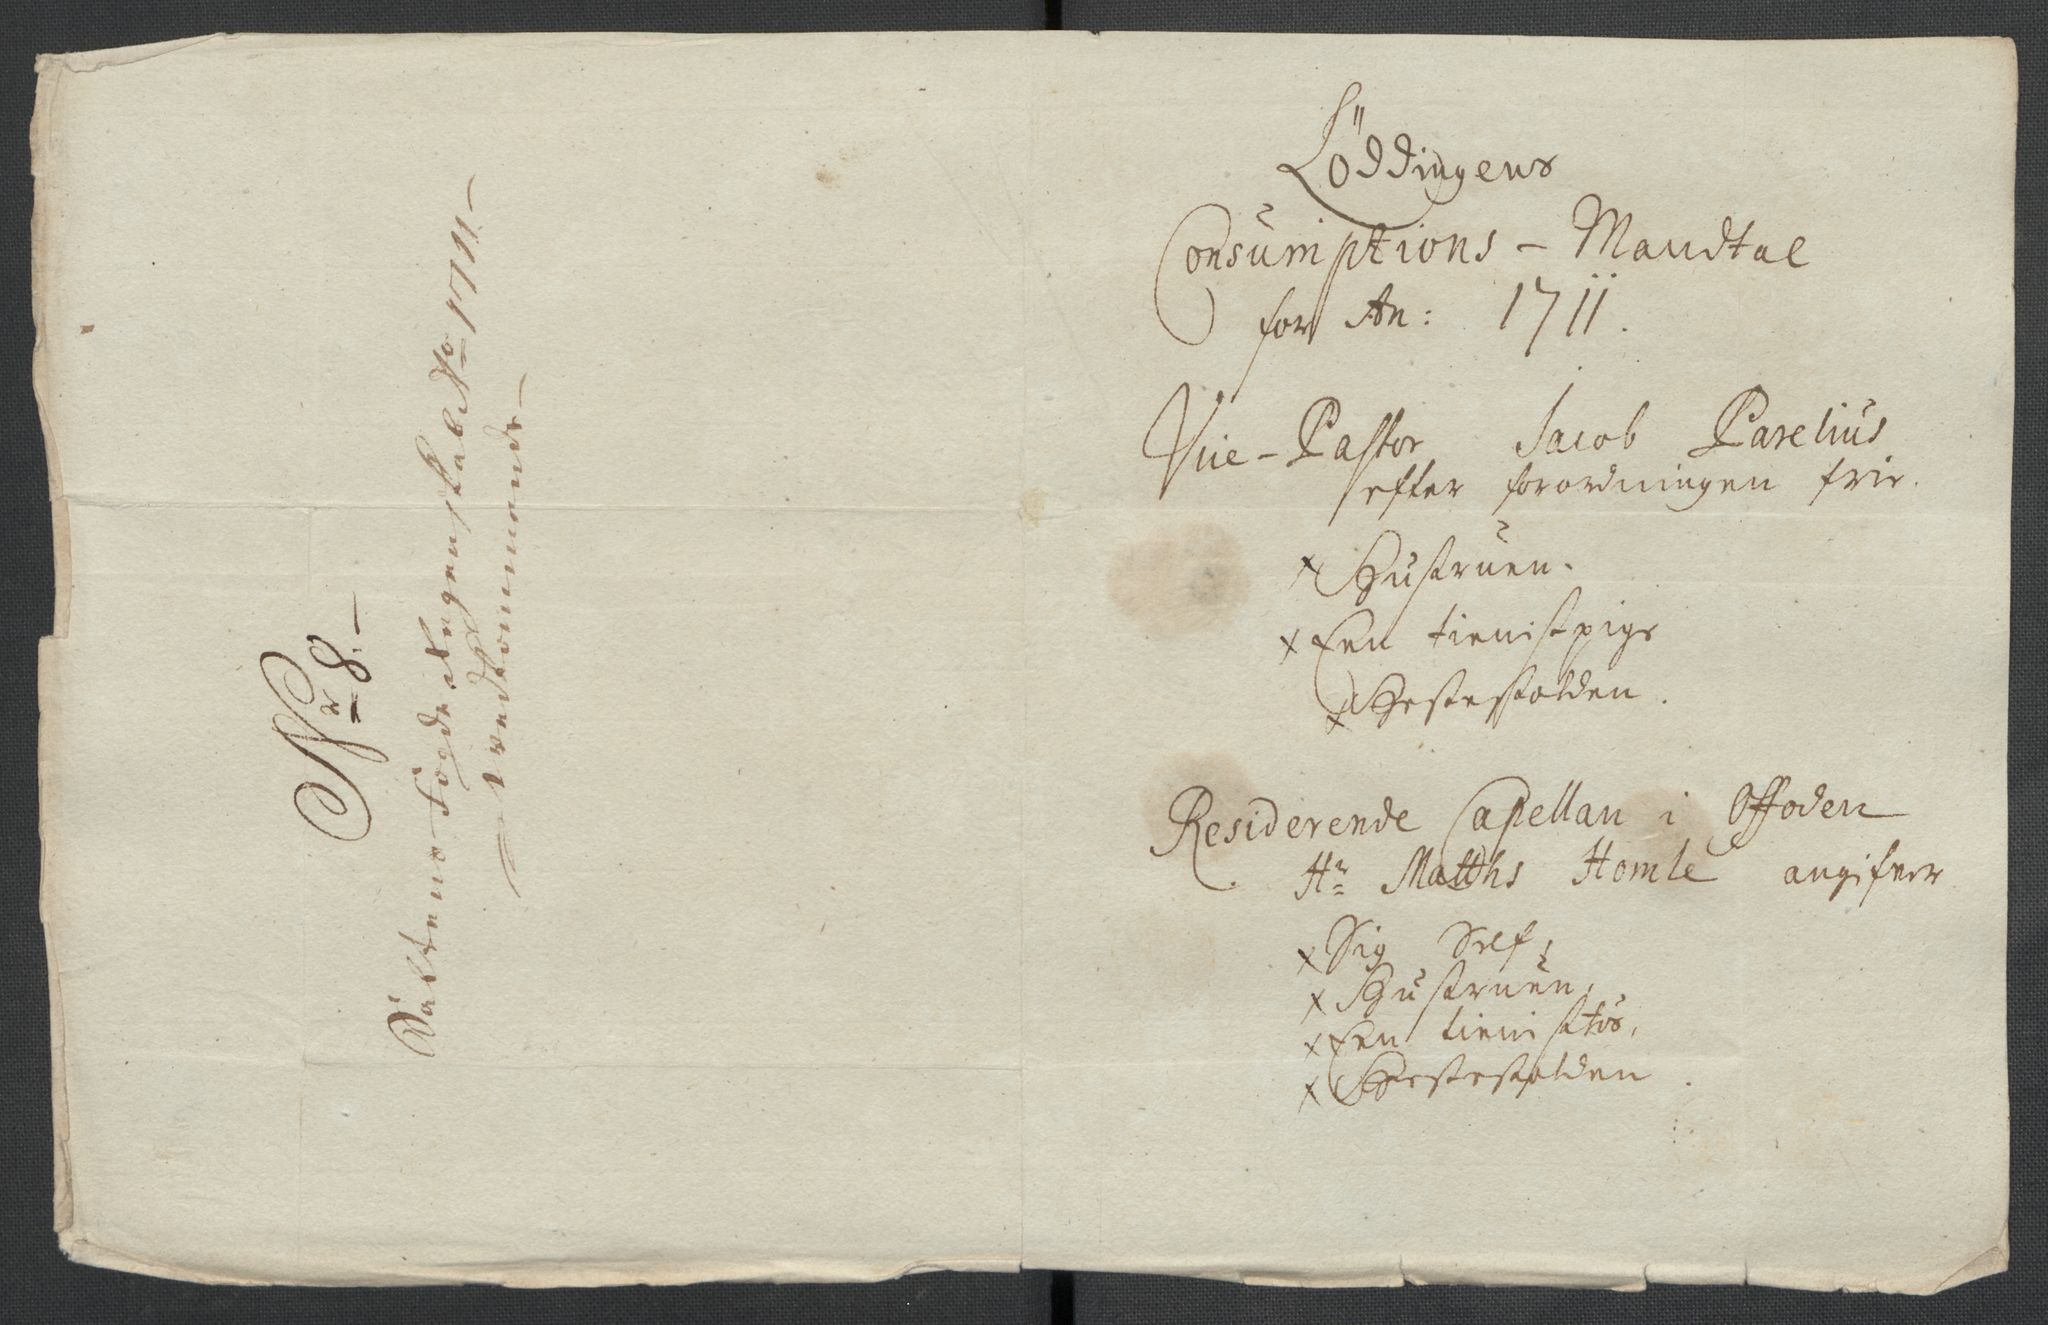 Nr 8.-
Saltens Fogderies Regenskab Ao 1711-
vedkommende-
Löddingens
Consumptions - Mandtal
for An: 1711.
Vice-Pastor Jacob Parelius
efter forordningen frie.
x Hustruen.
x Een tienistpige
x Hesteskolden.
Residerende Capellan i Offoden
Hr Matths Homle angifver
x Sig Self,
x Hustruen,
x Een tienistøs,
x Hesteskolden.